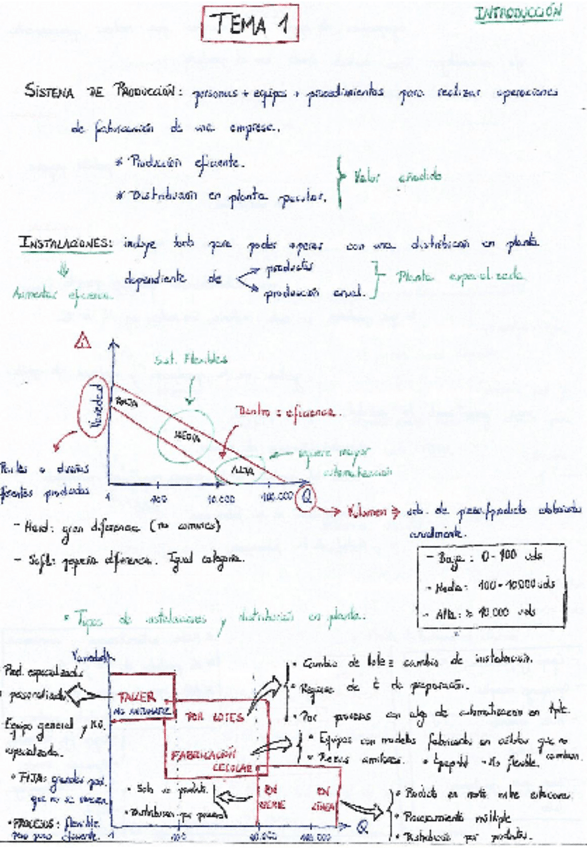 INTRODUCCIÓN
TEMA 1
SISTEMA DE PRODUCCIÓN: personas + equipos + procedimientos para realizar operaciones
de fabricación de una empresa.
* Producción eficiente.
* Distribución en planta
Valor añadido
INSTALACIONES: incluye todo para poder operar con una distribución en planta
dependiente de
productos
producción anual.
Planta especializada
Aumentar eficiencia.
Sist. Flexibles
Variedad
BAJA
Dentro = eficiencia.
MEDIA
requiere mayor
automatización
ALTA
1
100
10.000
100.000
Q
productos
Volumen → uds. de
anualmente.
- Hard: gran diferencia (no comunes)
- Soft: pequeña diferencia. Igual categoría.
- Baja: 0-100 uds
- Media: 100-10000 uds
- Alta: > 10.000 uds
* Tipos de instalaciones y distribución en planta.
Variedad
Prod. especializado
personalizado
TALLER
NO AUTOMATIZ.
POR LOTES
• Cambio de lote = cambio de instalación.
• Requiere de t de preparación.
• Por procesos con algo de automatización en
Equipo general y
especializada.
FABRICACIÓN
CELULAR
• Equipos con modelos fabricados en células que no
cambian.
• Piezas similares.
• No flexible.
• FIJA: grandes
que no se mueven.
• Solo un producto.
• Distribución por proceso
EN
SERIE
EN
LÍNEA
• Producto en entre estaciones.
• Procesamiento múltiple
• Distribución por productos.
• PROCESOS: flexible
pero poco eficiente.
1
100
10.000
100.000
Q